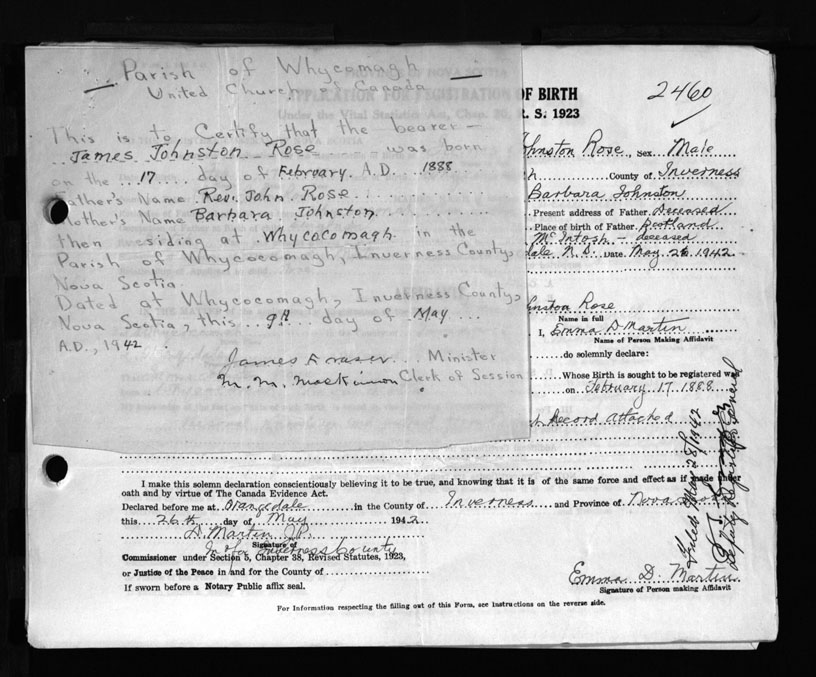 Parish of Whycomagh
United Church of Canada
This is to Certify that the bearer —
James Johnston Rose was born
on the 17 day of February A.D. 1888
Father's Name Rev. John Rose
Mother's Name Barbara Johnston
then residing at Whycocomagh in the
Parish of Whycocomagh, Inverness County,
Nova Scotia.
Dated at Whycocomagh, Inverness County,
Nova Scotia, this 9th day of May
A.D., 1942
James Fraser Minister
M. M. MacKinnon Clerk of Session
OF BIRTH
R. S. 1923
2460
Johnston Rose, Sex Male
County of Inverness
Barbara Johnston
Present address of Father Deceased
Place of birth of Father Scotland
McIntosh – deceased
dale N.S. Date May 26 1942
Johnston Rose
Name in full
I, Emma D Martin
Name of Person Making Affidavit
do solemnly declare:
Whose Birth is sought to be registered was
on February 17 1888
Record Attached
I make this solemn declaration conscientiously believing it to be true, and knowing that it is of the same force and effect as if made under
oath and by virtue of The Canada Evidence Act.
Declared before me at Orangedale in the County of Inverness and Province of Nova Scotia
this 26th day of May 1942
D. Martin J.P.
Signature of
In & for Inverness County
Commissioner under Section 5, Chapter 38, Revised Statutes, 1923,
or Justice of the Peace in and for the County of
If sworn before a Notary Public affix seal.
Emma D. Martin
Signature of Person making Affidavit
Filed May 28/1942
Deputy Registrar General
For Information respecting the filling out of this Form, see Instructions on the reverse side.